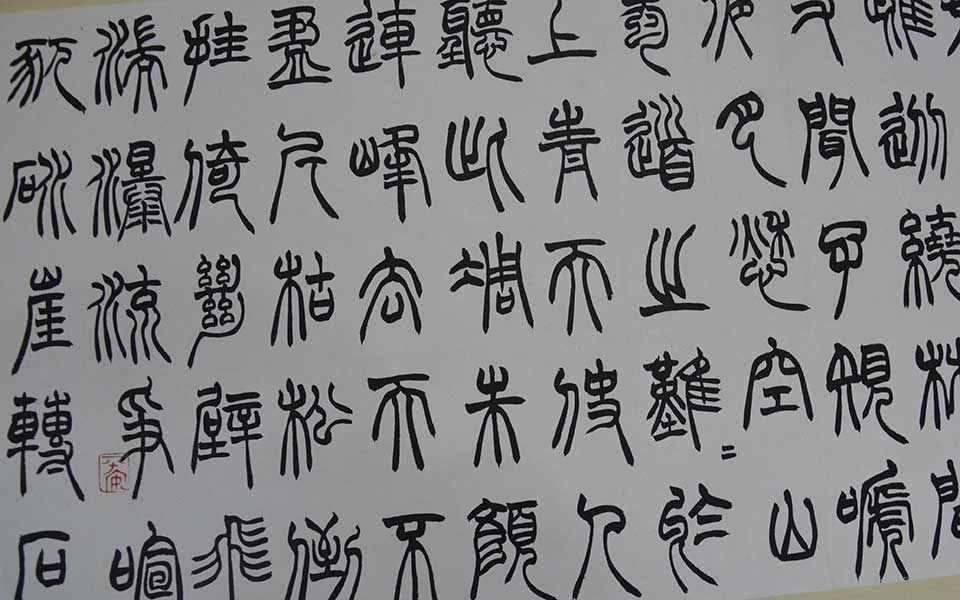 雌從繞林間
又聞子規啼
夜月愁空山
蜀道之難〻於
上青天使人
聽此凋朱顏
連峰去天不
盈尺枯松倒
挂倚絕壁飛
湍瀑流爭喧
豗砯崖轉石